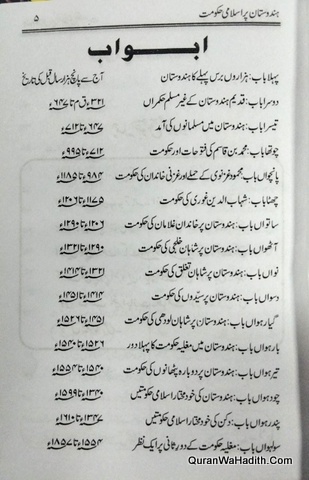 ہندوستان پر اسلامی حکومت ۵
ابواب
پہلا باب: ہزاروں برس پہلے کا ہندوستان آج سے پانچ ہزار سال قبل کی تاریخ
دوسرا باب: قدیم ہندوستان کے غیر مسلم حکمراں ۳۲۱ ق م تا ۶۴۷ء
تیسرا باب: ہندوستان میں مسلمانوں کی آمد ۶۴۷ء تا ۷۱۲ء
چوتھا باب: محمد بن قاسم کی فتوحات اور حکومت ۷۱۲ء تا ۹۹۵ء
پانچواں باب: محمود غزنوی کے حملے اور غزنی خاندان کی حکومت ۹۸۴ء تا ۱۱۸۵ء
چھٹا باب: شہاب الدین غوری کی حکومت ۱۱۷۵ء تا ۱۲۰۶ء
ساتواں باب: ہندوستان پر خاندان غلامان کی حکومت ۱۲۰۶ء تا ۱۲۹۰ء
آٹھواں باب: ہندوستان پر شاہان خلجی کی حکومت ۱۲۹۰ء تا ۱۳۲۱ء
نواں باب: ہندوستان پر شاہان تغلق کی حکومت ۱۳۲۱ء تا ۱۴۱۴ء
دسواں باب: ہندوستان پر سیّدوں کی حکومت ۱۴۱۴ء تا ۱۴۵۱ء
گیارہواں باب: ہندوستان پر شاہان لودھی کی حکومت ۱۴۵۱ء تا ۱۵۲۶ء
بارہواں باب: ہندوستان میں مغلیہ حکومت کا پہلا دور ۱۵۲۶ء تا ۱۵۴۰ء
تیرہواں باب: ہندوستان پر دوبارہ پٹھانوں کی حکومت ۱۵۴۰ء تا ۱۵۵۴ء
چودہواں باب: ہندوستان کی خود مختار اسلامی حکومتیں ۱۳۴۰ء تا ۱۵۹۹ء
پندرہواں باب: دکن کی خود مختار اسلامی حکومتیں ۱۳۴۷ء تا ۱۶۱۰ء
سولہواں باب: مغلیہ حکومت کے دور ثانی پر ایک نظر ۱۵۵۴ء تا ۱۸۵۷ء
QuranWaHadith.Com